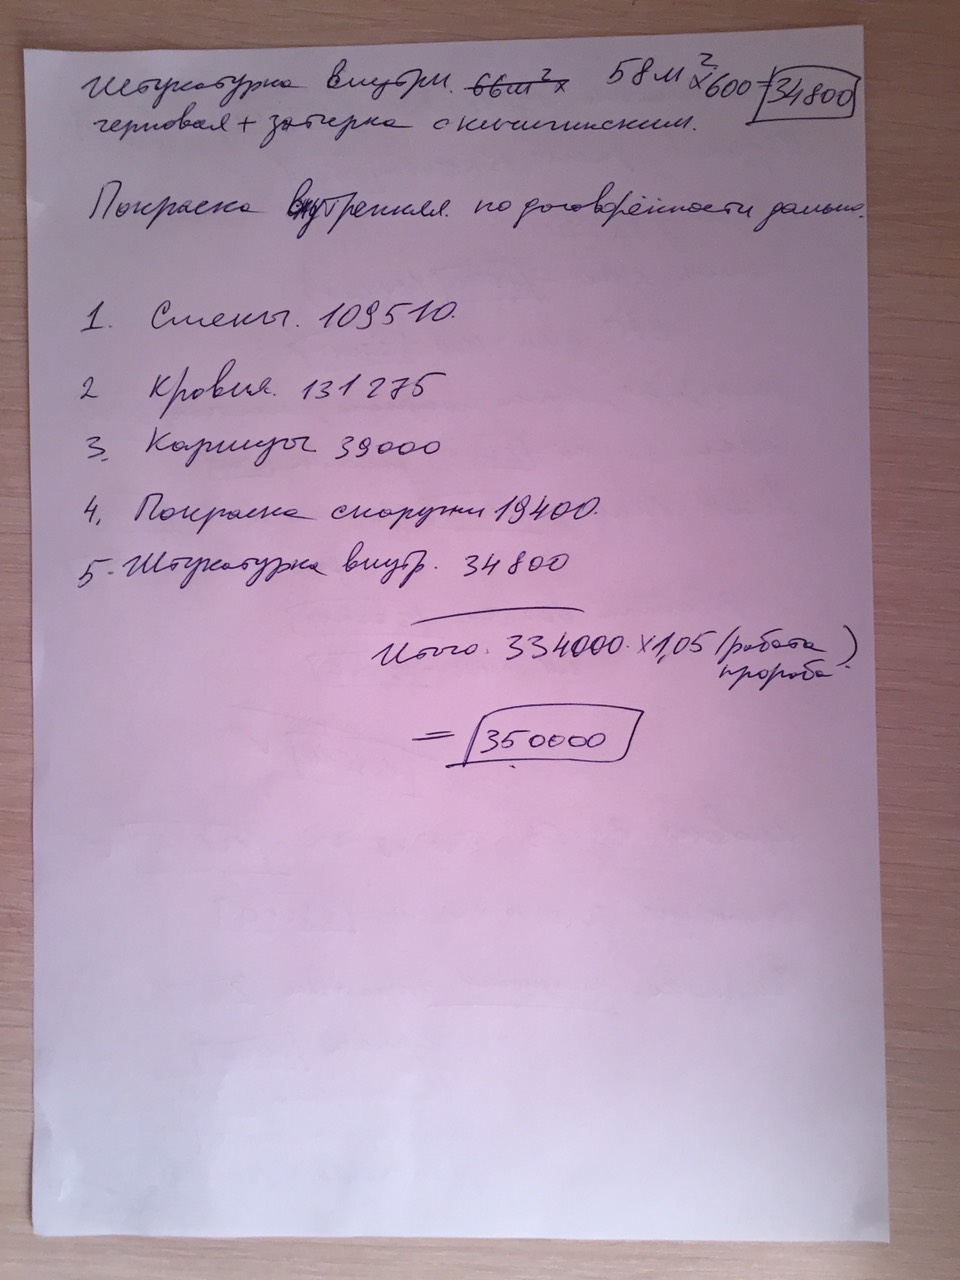 Штукатурка внутри. 66м² х 58м² х600=34800
черновая + затирка с
Покраска внутренняя. по договорённости дально.
1. Стены. 109510.
2 Кровля. 131275
3. Карнизы 39000
4. Покраска снаружи 19400.
5. Штукатурка внутр. 34800
Итого. 334000. х1,05 (работа
прораба)
= 350000